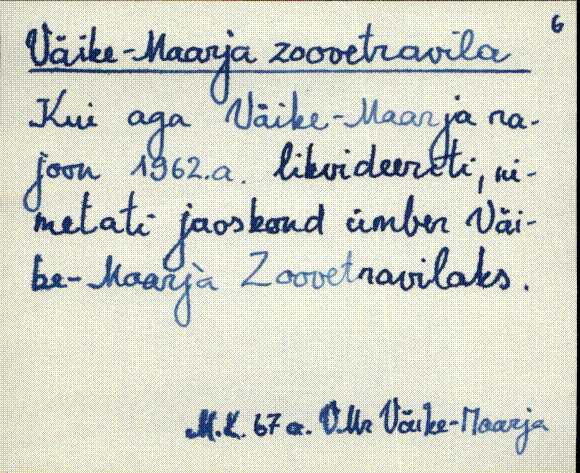 6
Väike-Maarja zoovetravila
Kui aga Väike-Maarja ra-
joon 1962.a. likvideeriti, ni-
metati jaoskond ümber Väi-
ke-Maarja Zoovetravilaks.
M.K. 67 a. VMr Väike-Maarja